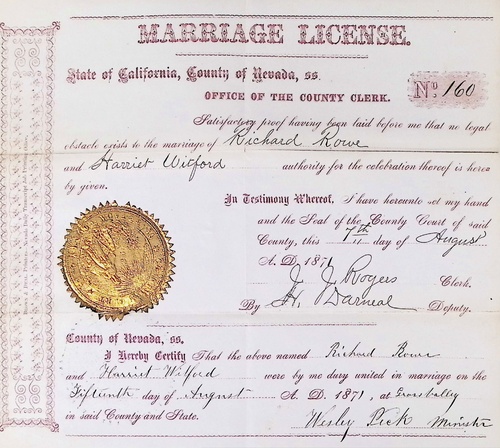 MARRIAGE LICENSE.
State of California, County of Nevada, ss.
OFFICE OF THE COUNTY CLERK.
No. 160
Satisfactory proof having been laid before me that no legal
obstacle exists to the marriage of Richard Rowe
and Harriet Witford authority for the celebration thereof is here-
by given.
In Testimony Whereof, I have hereunto set my hand
and the Seal of the County Court of said
County, this 7th day of August
A. D. 1871
J. J. Rogers Clerk.
By H. Darneal Deputy.
County of Nevada, ss.
I Hereby Certify That the above named Richard Rowe
and Harriet Witford were by me duly united in marriage on the
Fifteenth day of August A. D. 1871, at Grass Valley
in said County and State.
Wesley Peck Minister